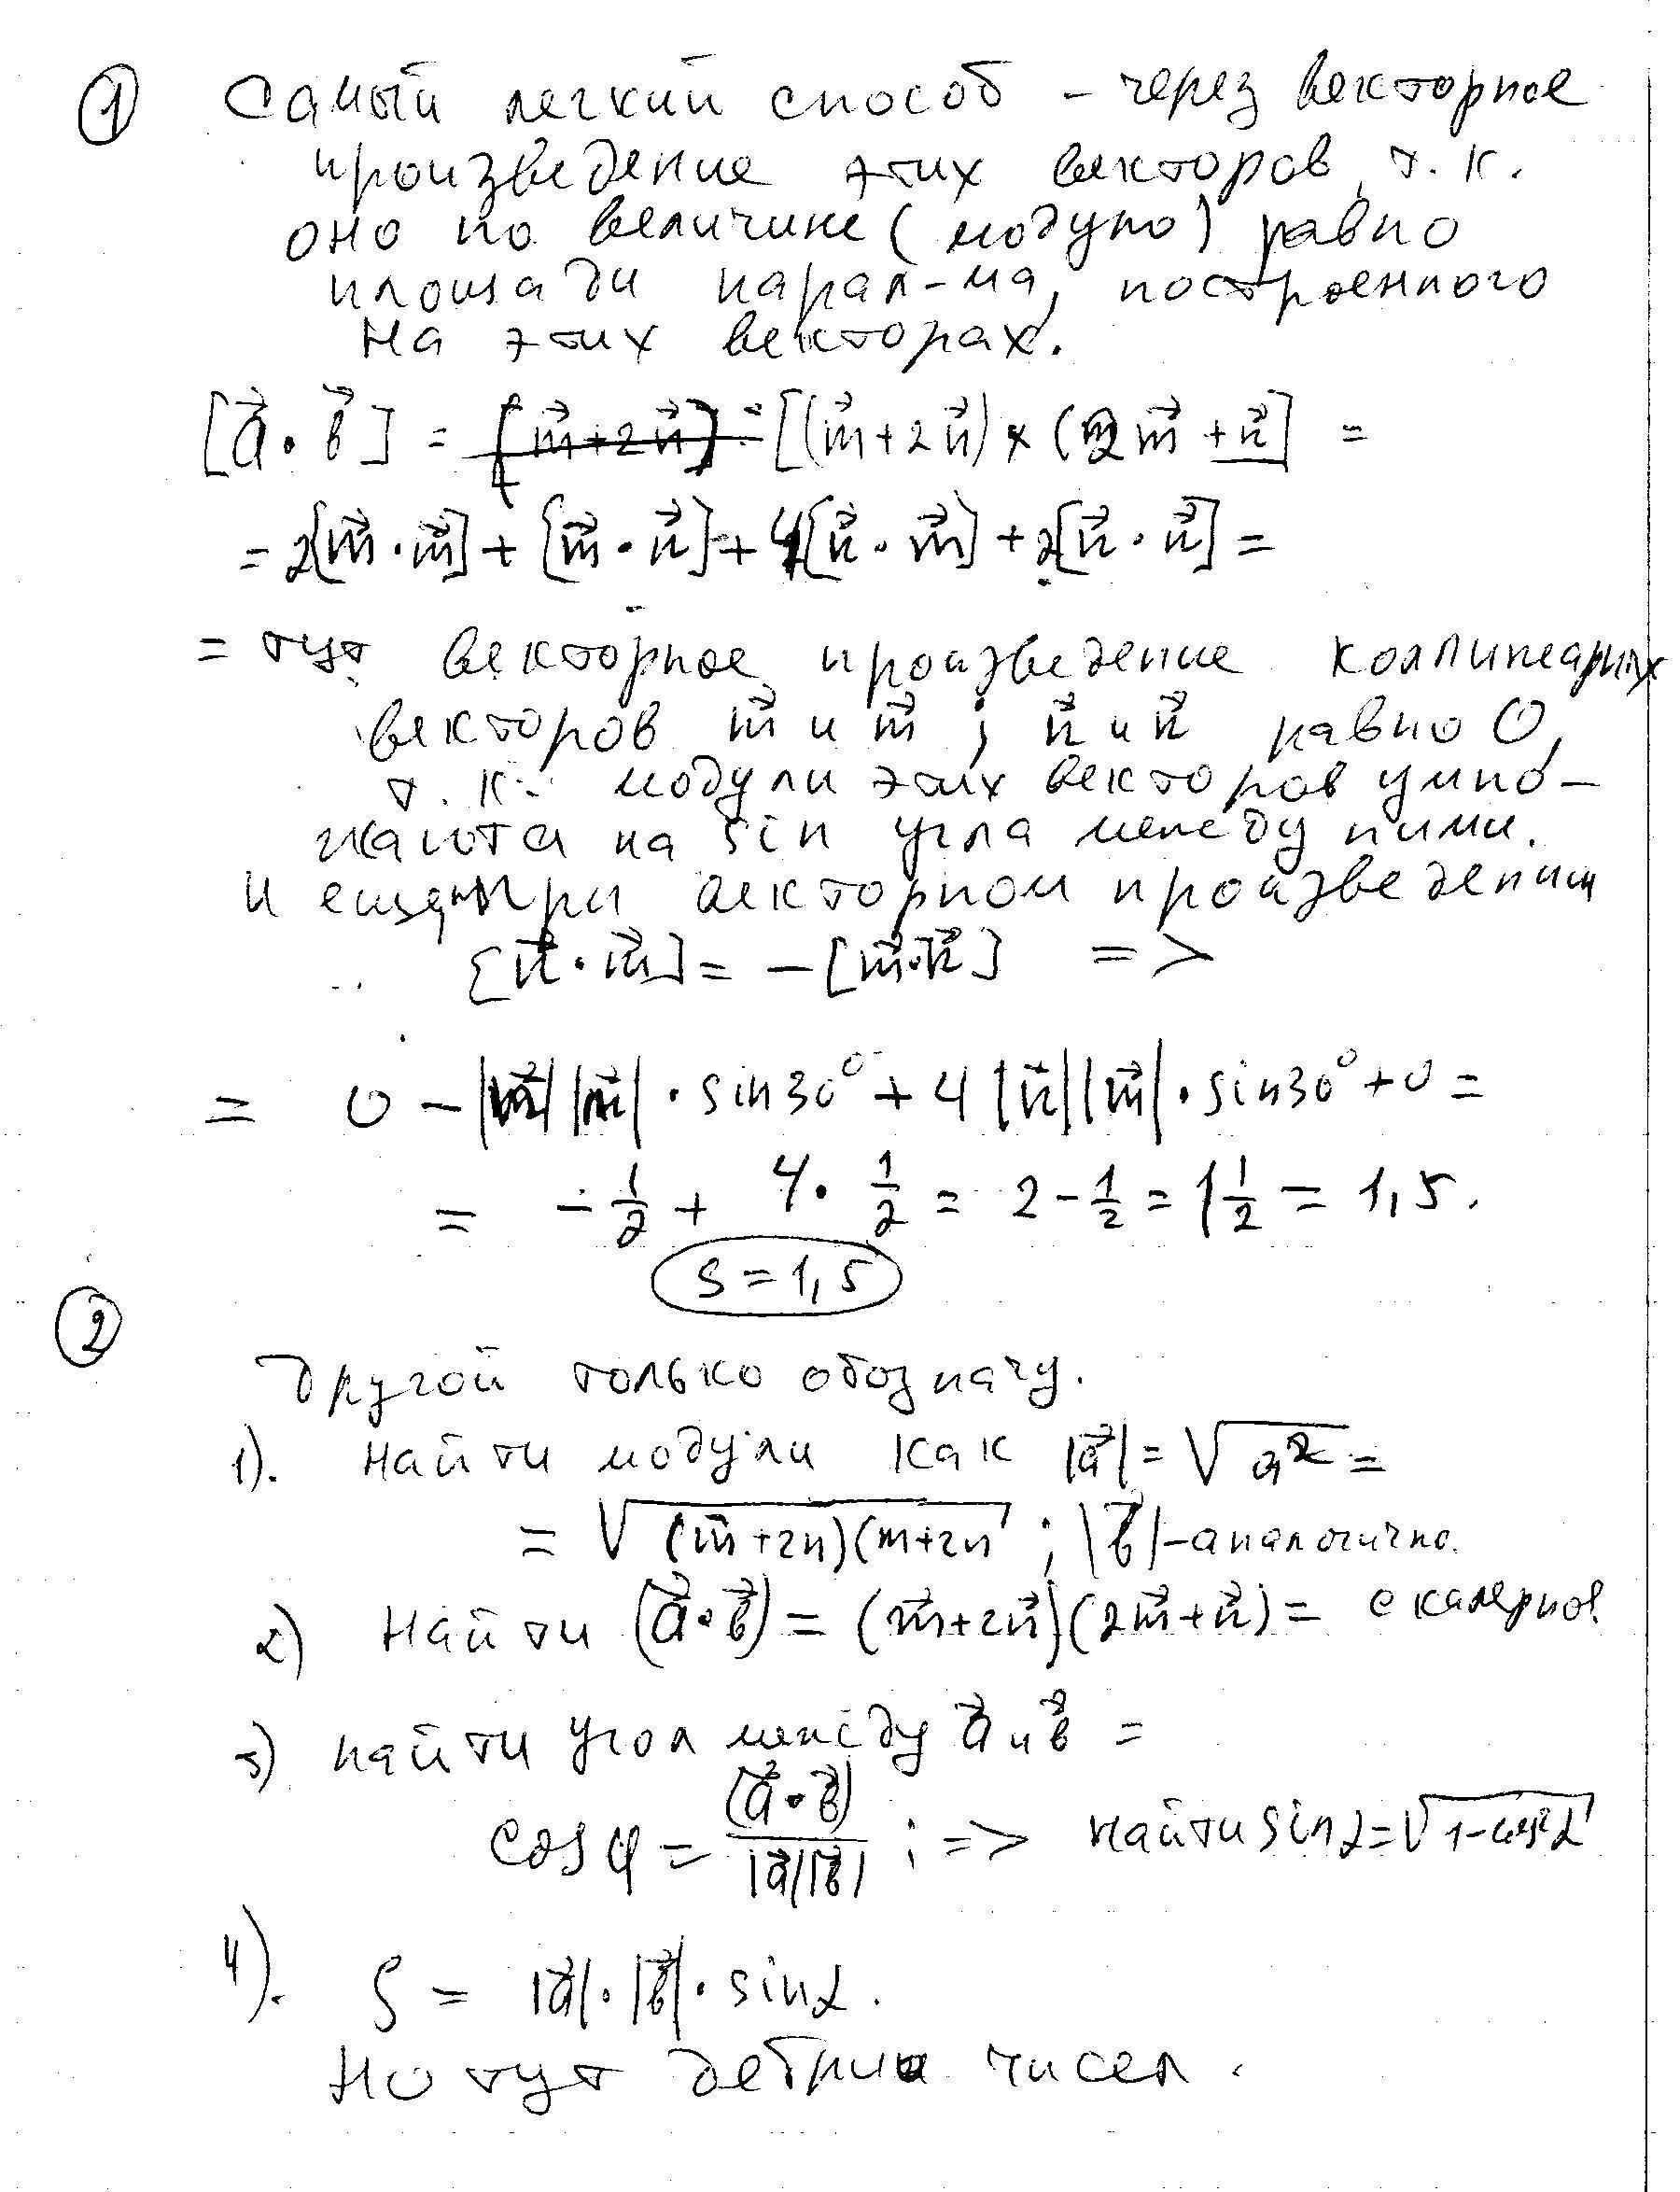 ① Самый легкий способ - через векторное
произведение этих векторов, т.к.
оно по величине (модулю) равно
площади парал-ма, построенного
на этих векторах.
[a⃗·b⃗] = [(m⃗+2n⃗)×(2m⃗+n⃗] =
= 2[m⃗·m⃗]+[m⃗·n⃗]+4[n⃗·m⃗]+2[n⃗·n⃗] =
= тут векторное произведение коллинеарных
векторов m⃗ и m⃗ ; n⃗ и n⃗ равно 0,
т.к. модули этих векторов умно-
жаются на sin угла между ними.
И еще, при векторном произведении
[n⃗·m⃗] = -[m⃗·n⃗] =>
= 0 - |m⃗||n⃗|·sin30° + 4|n⃗||m⃗|·sin30° + 0 =
= - 1/2 + 4· 1/2 = 2 - 1/2 = 1 1/2 = 1,5.
S = 1,5
②
Другой только обозначу.
1). Найти модули как |a⃗| = √a² =
= √(m⃗+2n)(m+2n ; |b⃗| - аналогично.
2) Найти (a⃗·b⃗) = (m⃗+2n⃗)(2m⃗+n⃗) = скалярное
3) найти угол между a⃗ и b⃗ =
cosφ = (a⃗·b⃗)/|a⃗||b⃗| ; => найти sinα = √1-cos²α
4). S = |a⃗|·|b⃗|·sinα.
Но тут дебри чисел.